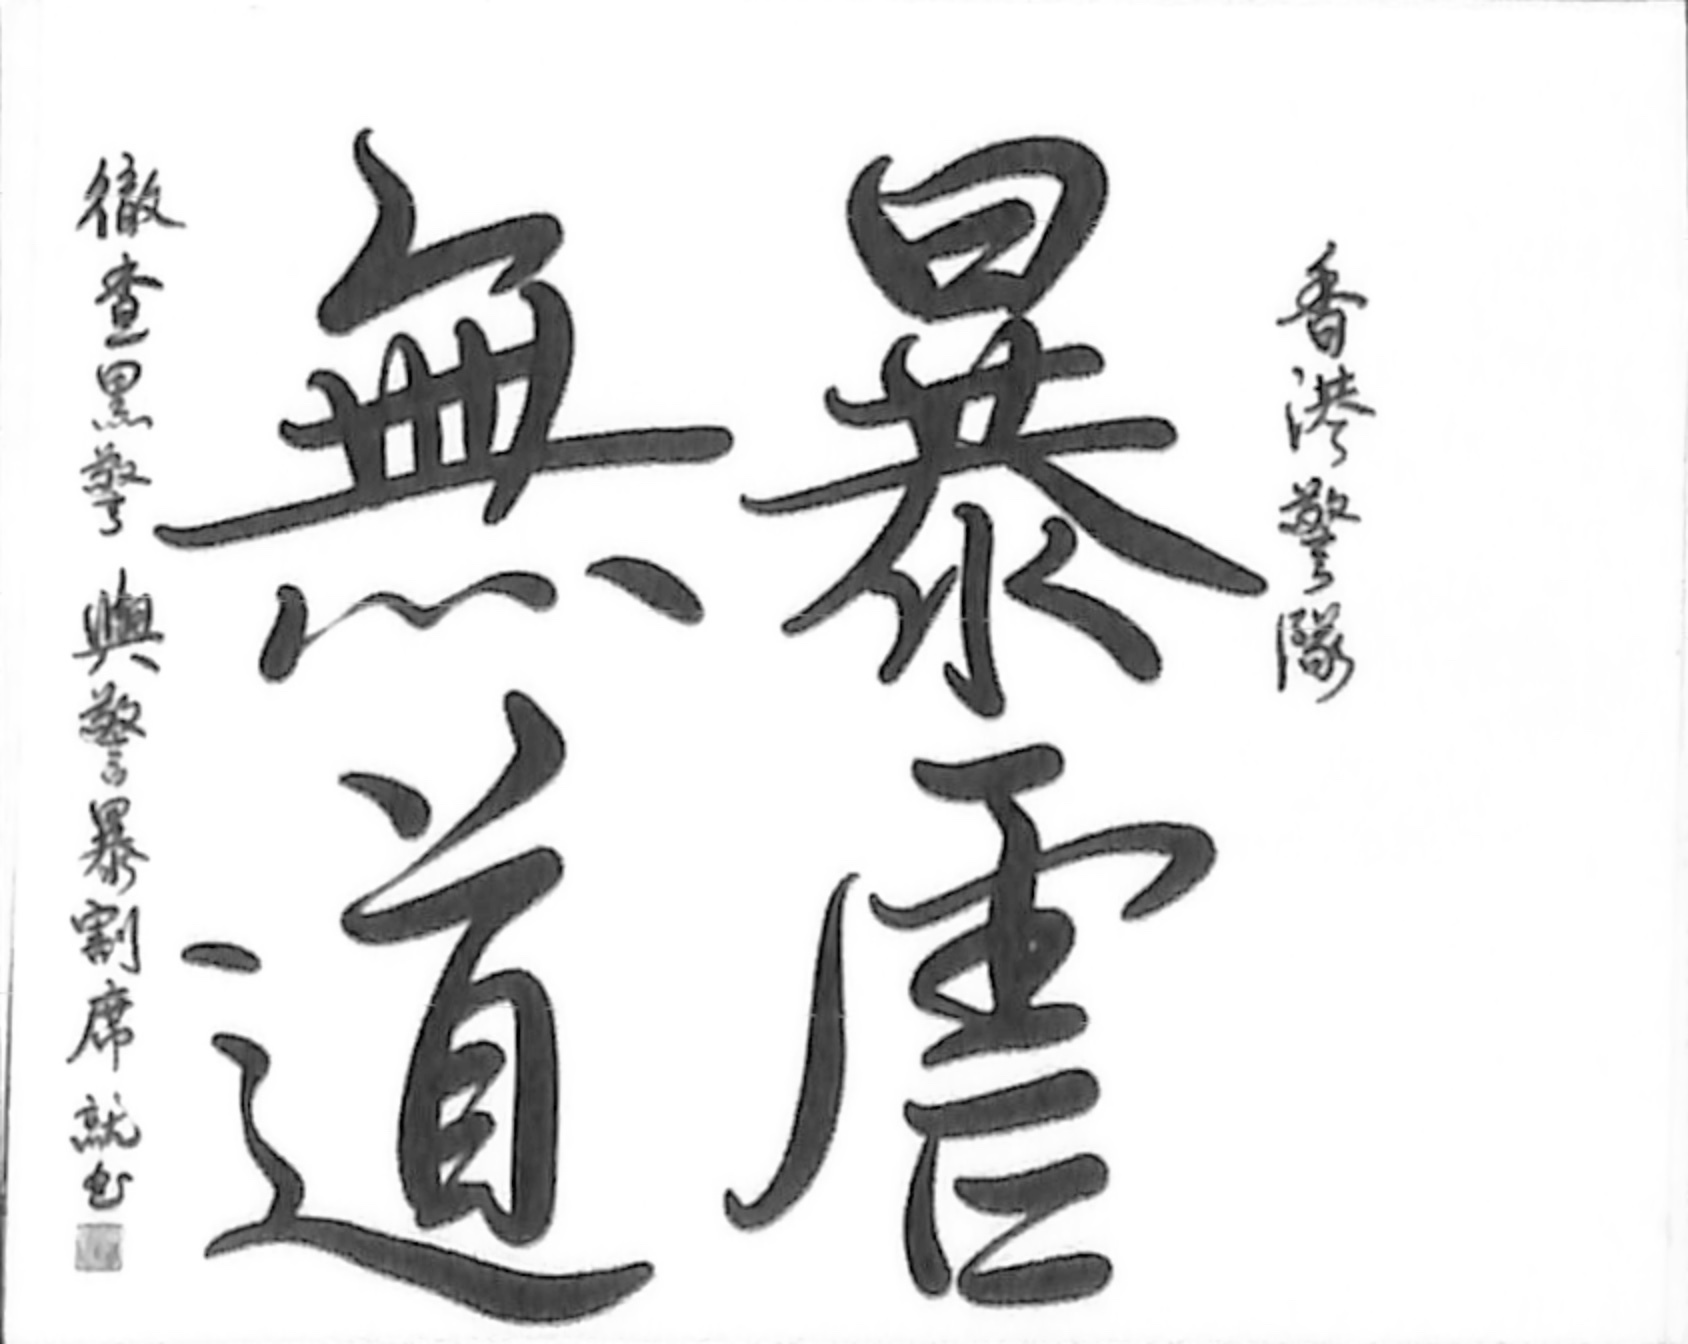 香港警隊
暴虐
無道
徹查黑警 與警暴割席 就書